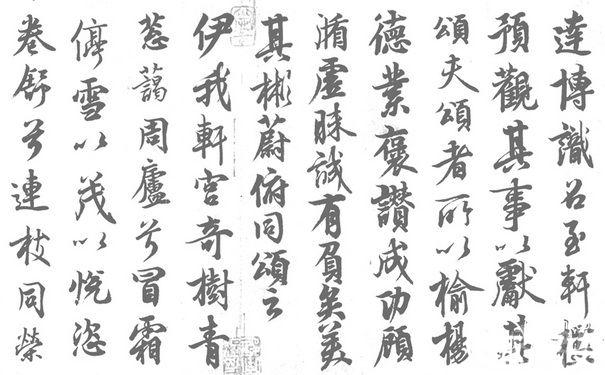 達博識召至軒檻
預觀其事以獻其
頌夫頌者所以揄揚
德業褒讚成功顧
循虛昧誠有負矣美
其彬蔚俯同頌云
伊我軒宮奇樹青
蔥藹周廬兮冒霜
停雪以茂以悅恣
卷舒兮連枝同榮